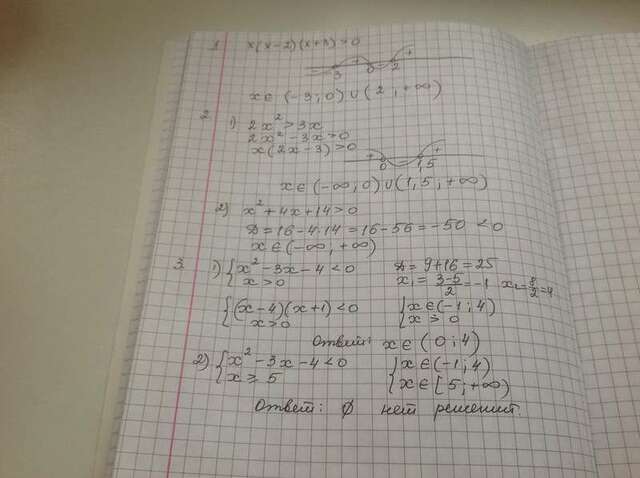 1 x(x-2)(x+3)>0
-3 0 2 +
x∈(-3;0)∪(2;+∞)
2. 1) 2x²>3x
2x²-3x>0
x(2x-3)>0
+ 0 - 1,5 +
x∈(-∞;0)∪(1,5;+∞)
2) x²+4x+14>0
D=16-4·14=16-56=-50<0
x∈(-∞;+∞)
3. 1) {x²-3x-4<0 D=9+16=25
x>0 x₁=3-5/2=-1 x₂=8/2=4
{(x-4)(x+1)<0 {x∈(-1;4)
x>0 x≥0
Ответ: x∈(0;4)
2) {x²-3x-4<0 {x∈(-1;4)
x≥5 x∈[5;+∞)
Ответ: ∅ нет решения.